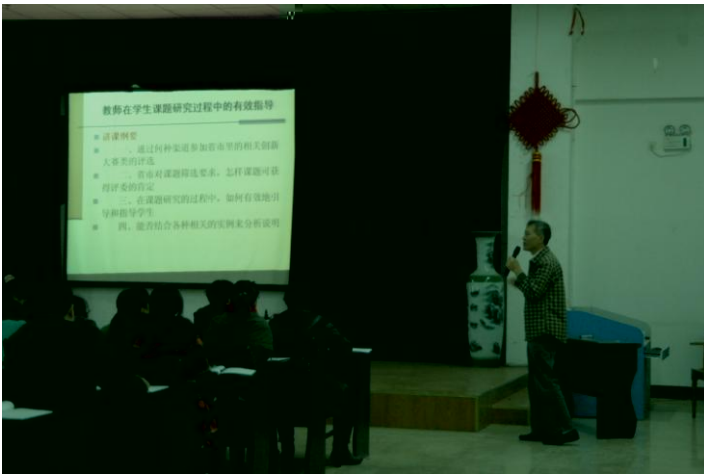 教师在学生课题研究过程中的有效指导
讲课纲要
一、通过何种渠道参加省市里的相关创新
大赛类的评选
二、省市对课题筛选要求，怎样课题可获
得评委的肯定
三、在课题研究的过程中，如何有效地引
导和指导学生
四、能否结合各种相关的实例来分析说明